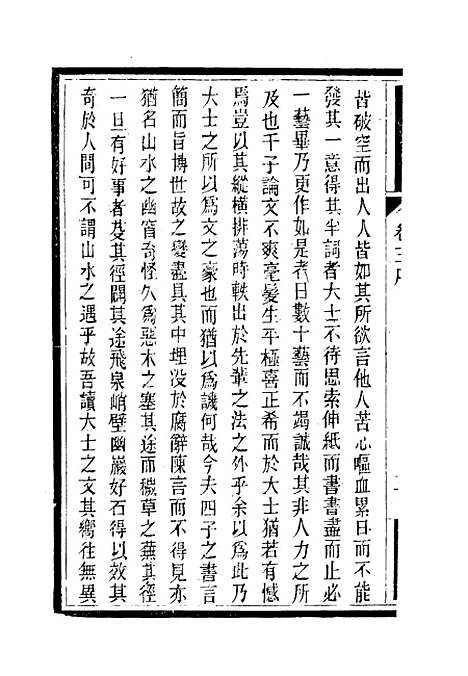 皆破空而出人人皆如其所欲言他人苦心嘔血累日而不能
發其一意得其半詞者大士不待思索伸紙而書書盡而止必
一藝畢乃更作如是者日數十藝而不竭誠哉其非人力之所
及也千子論文不爽毫髮生平極喜正希而於大士猶若有憾
焉豈以其縱橫排蕩時軼出於先輩之法之外乎余以爲此乃
大士之所以爲文之豪也而猶以爲譏何哉今夫四子之書言
簡而旨博世故之變盡具其中埋没於腐辭陳言而不得見亦
猶名山水之幽窅奇怪久爲惡木之塞其途而穢草之蕪其徑
一旦有好事者芟其徑闢其途飛泉峭壁幽巖好石得以效其
奇於人間可不謂山水之遇乎故吾讀大士之文其嚮往無異
卷三序